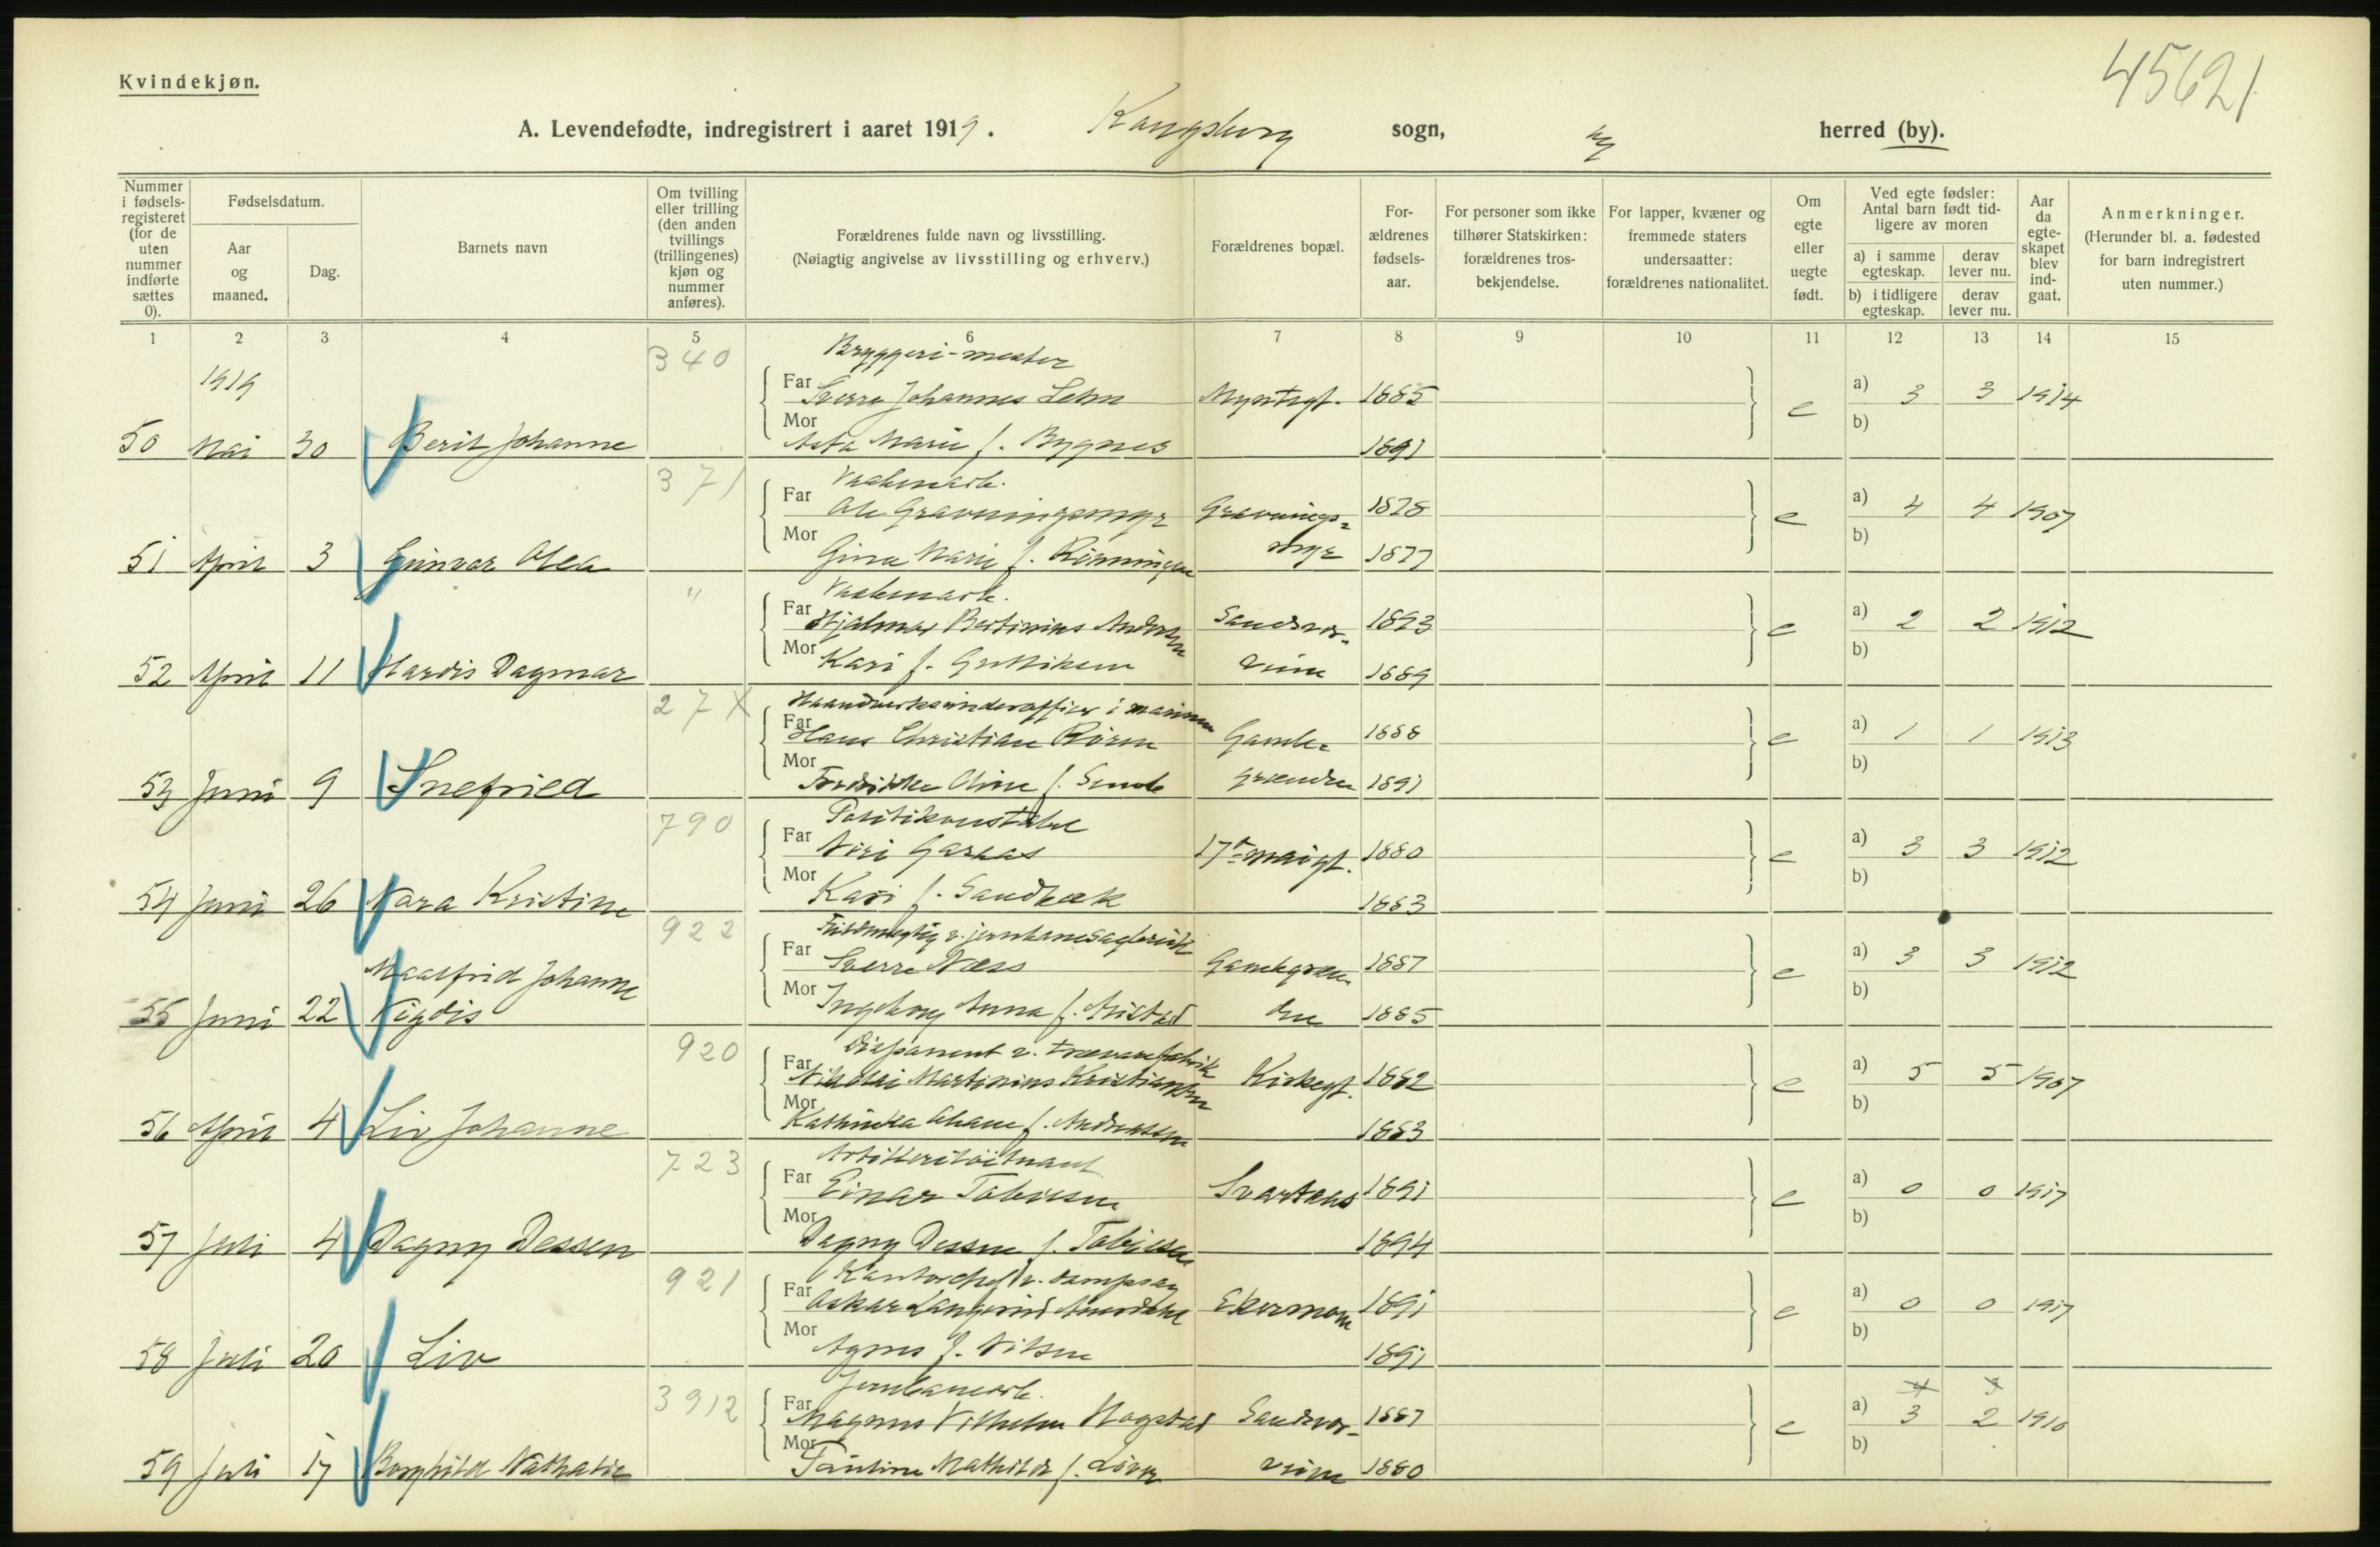 45621
Kvindekjøn.
A. Levendefødte, indregistrert i aaret 1919. Kongsberg sogn, by herred (by).
Nummer i fødsels-registeret (for de uten nummer indførte sættes 0).
Fødselsdatum.
Aar og maaned.
Dag.
Barnets navn
Om tvilling eller trilling (den anden tvillings (trillingenes) kjøn og nummer anføres).
Forældrenes fulde navn og livsstilling.
(Nøiagtig angivelse av livsstilling og erhverv.)
Forældrenes bopæl.
For-ældrenes fødsels-aar.
For personer som ikke tilhører Statskirken: forældrenes tros-bekjendelse.
For lapper, kvæner og fremmede staters undersaatter: forældrenes nationalitet.
Om egte eller uegte født.
Ved egte fødsler: Antal barn født tid-ligere av moren
a) i samme egteskap.
derav lever nu.
b) i tidligere egteskap.
derav lever nu.
Aar da egte-skapet blev ind-gaat.
Anmerkninger.
(Herunder bl. a. fødested for barn indregistrert uten nummer.)
1 2 3 4 5 6 7 8 9 10 11 12 13 14 15
340 Bryggeri-mester
1919 Far Sverre Johannes Lehn Myntgt. 1885 e a) 3 3 1914
Mor b)
50 Mai 30 Berit Johanne Asta Marie f. Bygnes 1891
371
Far Ole Gravningsmyr Gravnings- 1878 e a) 4 4 1907
Mor myr b)
51 April 3 Gunvor Olea Gina Marie f. Rønningen 1877
"
Far Hjalmar Bertinius Andersen Sandsvær- 1893 e a) 2 2 1912
Mor b)
52 April 11 Hardis Dagmar Kari f. Gulliksen 1889
27X Haandverksunderofficer i marinen
Far Hans Christian Rörm Gamle- 1888 e a) 1 1 1913
Mor b)
53 Juni 9 Snefried Fredrikke Oline f. grænden 1891
790 Politikonstabel
Far Garaas 17de maigt. 1880 e a) 3 3 1912
Mor b)
54 Juni 26 Nora Kristine Kari f. Sandbæk 1883
922 Fuldmegtig v. jernbane
Far Sverre Næss Gamlegræn- 1887 e a) 3 3 1912
Maalfrid Johanne Mor b)
55 Juni 22 Vigdis Ingeborg Anna f. den 1885
920 Disponent v. trævarefabrik
Far Nikolai Martinius Kristiansen Kirkegt. 1882 e a) 5 5 1907
Mor b)
56 April 4 Liv Johanne Kathinka f. Andreassen 1883
723 Artilleriløitnant
Far Einar Tobiesen Svartaas 1891 e a) 0 0 1917
Mor b)
57 Juli 4 Dagny Dessen Dagny Dessen f. Tobiesen 1894
921 Kontorchef v. dampsag
Far Oskar 1891 e a) 0 0 1917
Mor b)
58 Juli 20 Liv Agnes f. Nilsen 1891
3912 Jernbanearb. 4 3
Far Magnus Vilhelm Hogstad Sandsvær- 1887 e a) 3 2 1910
Mor b)
59 Juli 17 Borghild Nathalie Pauline Mathilde f. 1880